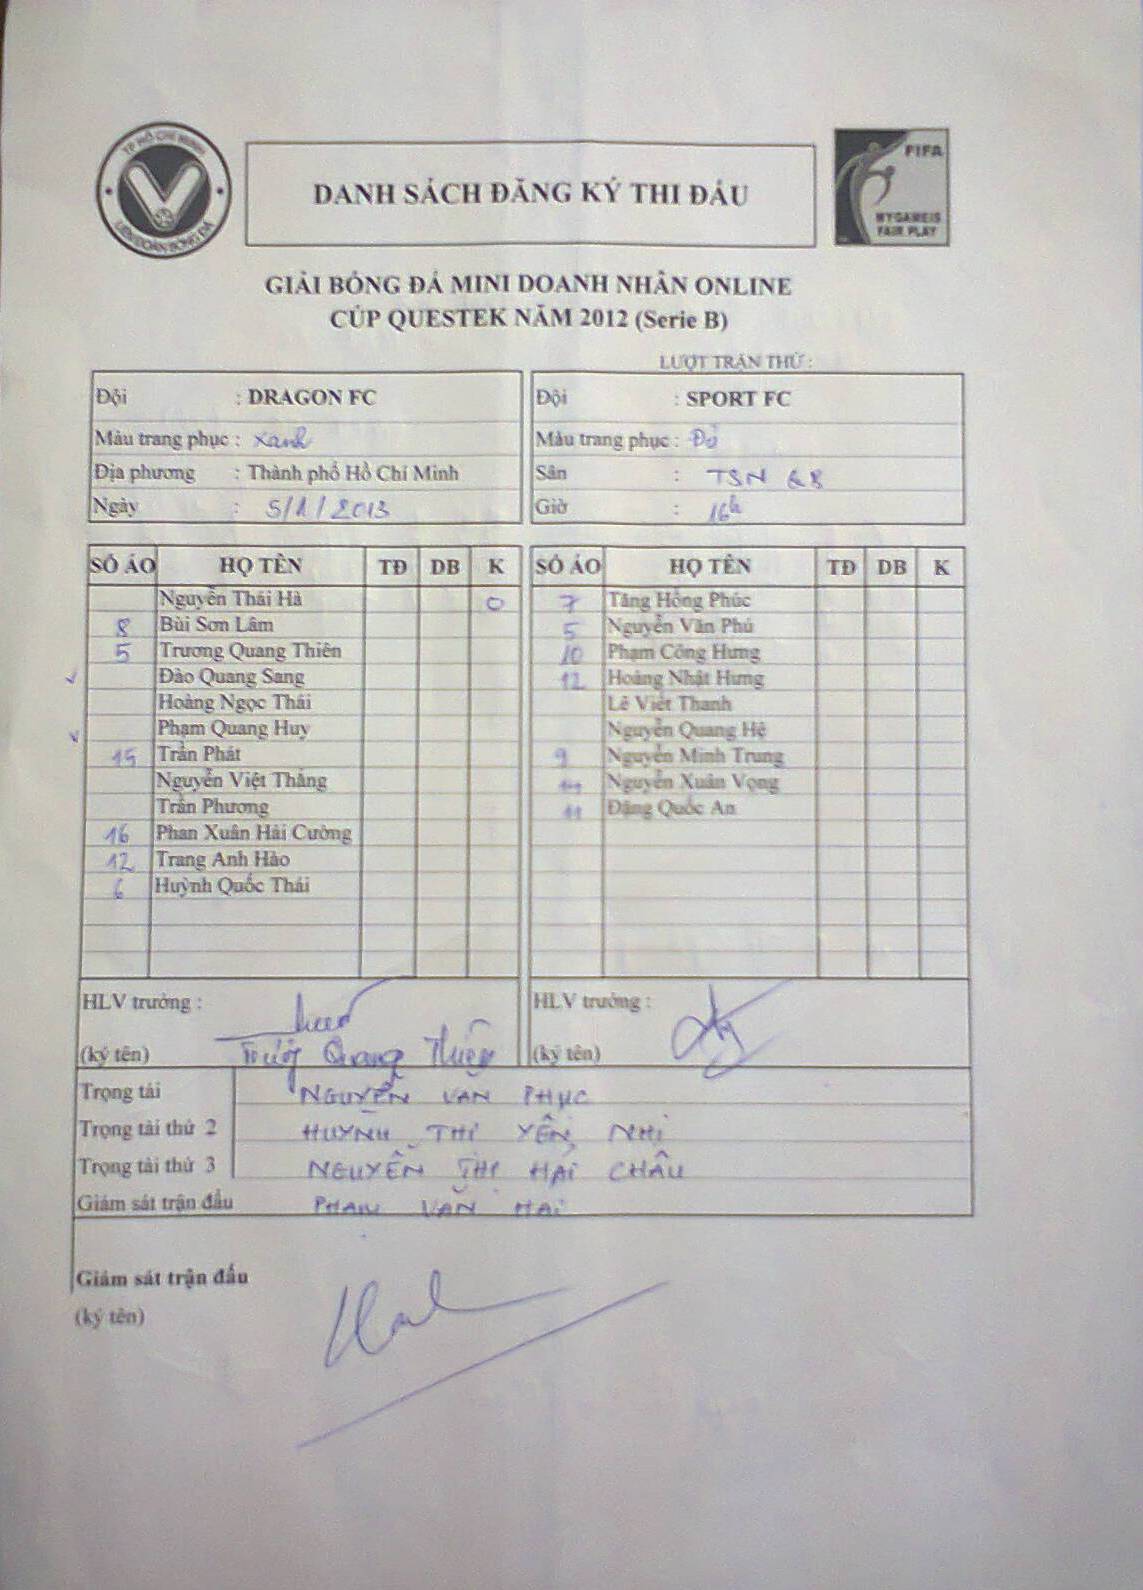 TP HỒ CHÍ MINH
LIÊN ĐOÀN BÓNG ĐÁ
DANH SÁCH ĐĂNG KÝ THI ĐẤU
FIFA
MY GAME IS
FAIR PLAY
GIẢI BÓNG ĐÁ MINI DOANH NHÂN ONLINE
CÚP QUESTEK NĂM 2012 (Serie B)
LƯỢT TRẬN THỨ :
Đội : DRAGON FC
Màu trang phục : Xanh
Địa phương : Thành phố Hồ Chí Minh
Ngày : 5/1/2013
Đội : SPORT FC
Màu trang phục : Đỏ
Sân : TSN
Giờ : 16h
SỐ ÁO HỌ TÊN TĐ DB K
Nguyễn Thái Hà 0
8 Bùi Sơn Lâm
5 Trương Quang Thiên
Đào Quang Sang
Hoàng Ngọc Thái
Phạm Quang Huy
15 Trần Phát
Nguyễn Việt Thắng
Trần Phương
16 Phan Xuân Hải Cường
12 Trang Anh Hào
6 Huỳnh Quốc Thái
SỐ ÁO HỌ TÊN TĐ DB K
7 Tăng Hồng Phúc
5 Nguyễn Văn Phú
10 Phạm Công Hưng
12 Hoàng Nhật Hưng
Lê Viết Thanh
Nguyễn Quang Hệ
9 Nguyễn Minh Trung
Nguyễn Xuân Vọng
11 Đặng Quốc An
HLV trưởng :
(ký tên) Trương Quang Thiên
HLV trưởng :
(ký tên)
Trọng tài NGUYỄN VAN PHUC
Trọng tài thứ 2 HUỲNH THỊ YẾN NHI
Trọng tài thứ 3 NGUYỄN THỊ HẢI CHÂU
Giám sát trận đấu PHAM VĂN HAI
Giám sát trận đấu
(ký tên)